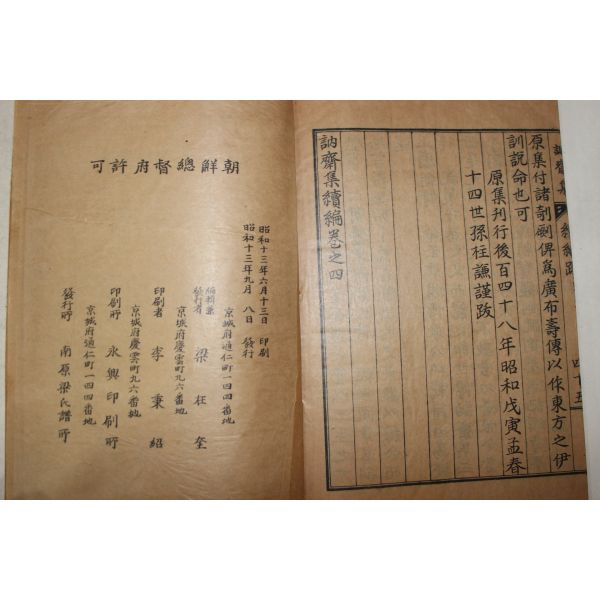 續編跋
四十五
原集付諸剞劂俾爲廣布壽傳以作東方之伊
訓說命也可
原集刊行後百四十八年昭和戊寅孟春
十四世孫柱謙謹跋
訥齋集續編卷之四
朝鮮總督府許可
昭和十三年六月十三日 印刷
昭和十三年九月 八日 發行
京城府通仁町一四四番地
編輯兼
發行者 梁柱奎
京城府慶雲町九六番地
印刷者 李秉紹
京城府慶雲町九六番地
印刷所 永興印刷所
京城府通仁町一四四番地
發行所 南原梁氏譜所